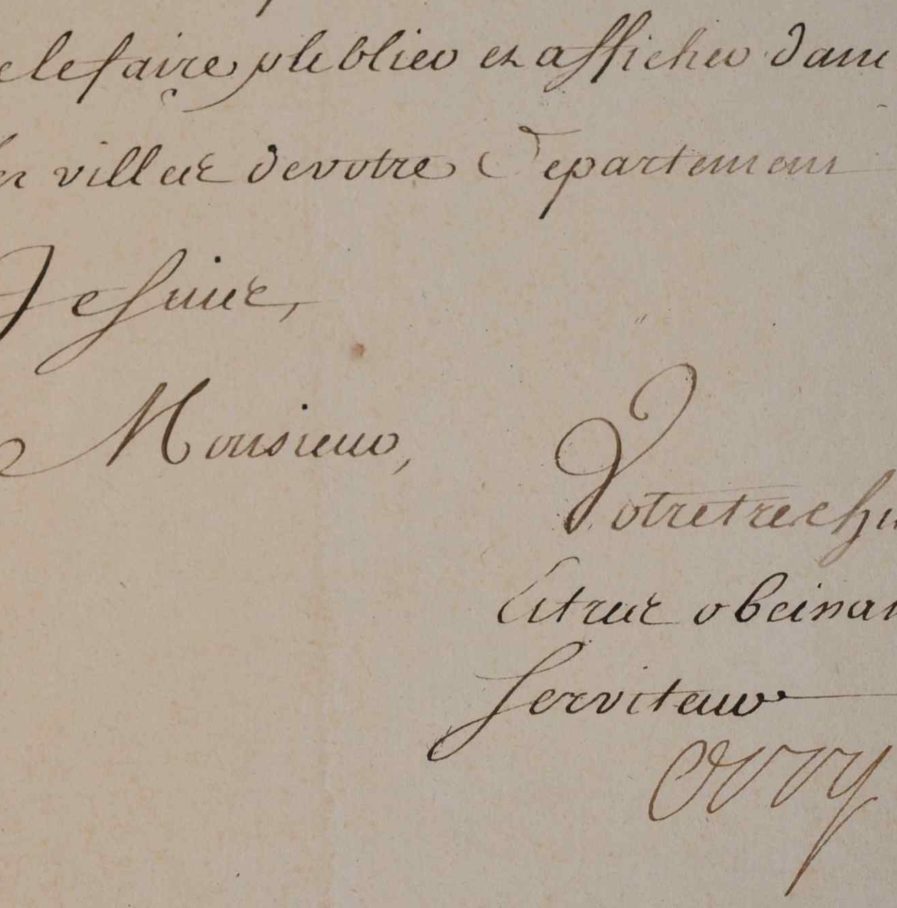 le faire publier et afficher dans
les villes de votre Departement
Je suis,
Monsieur,
Votre tres hu
Et tres obeissan
Serviteur
Orry